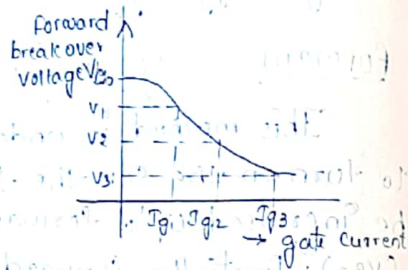 Forward
breakover
voltage VBo
V1
V2
V3
Ig1 Ig2 Ig3
→ gate current